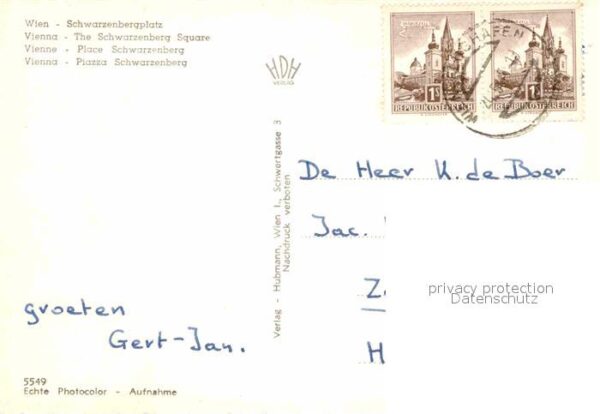 Wien - Schwarzenbergplatz
Vienna - The Schwarzenberg Square
Vienne - Place Schwarzenberg
Vienna - Piazza Schwarzenberg
HDH
VERLAG
1S
REPUBLIK ÖSTERREICH
1S
REPUBLIK ÖSTERREICH
Verlag - Hubmann, Wien I., Schwertgasse 3
Nachdruck verboten
De Heer K. de Boer
Jac.
Z
H
privacy protection
Datenschutz
groeten
Gert-Jan.
5549
Echte Photocolor - Aufnahme